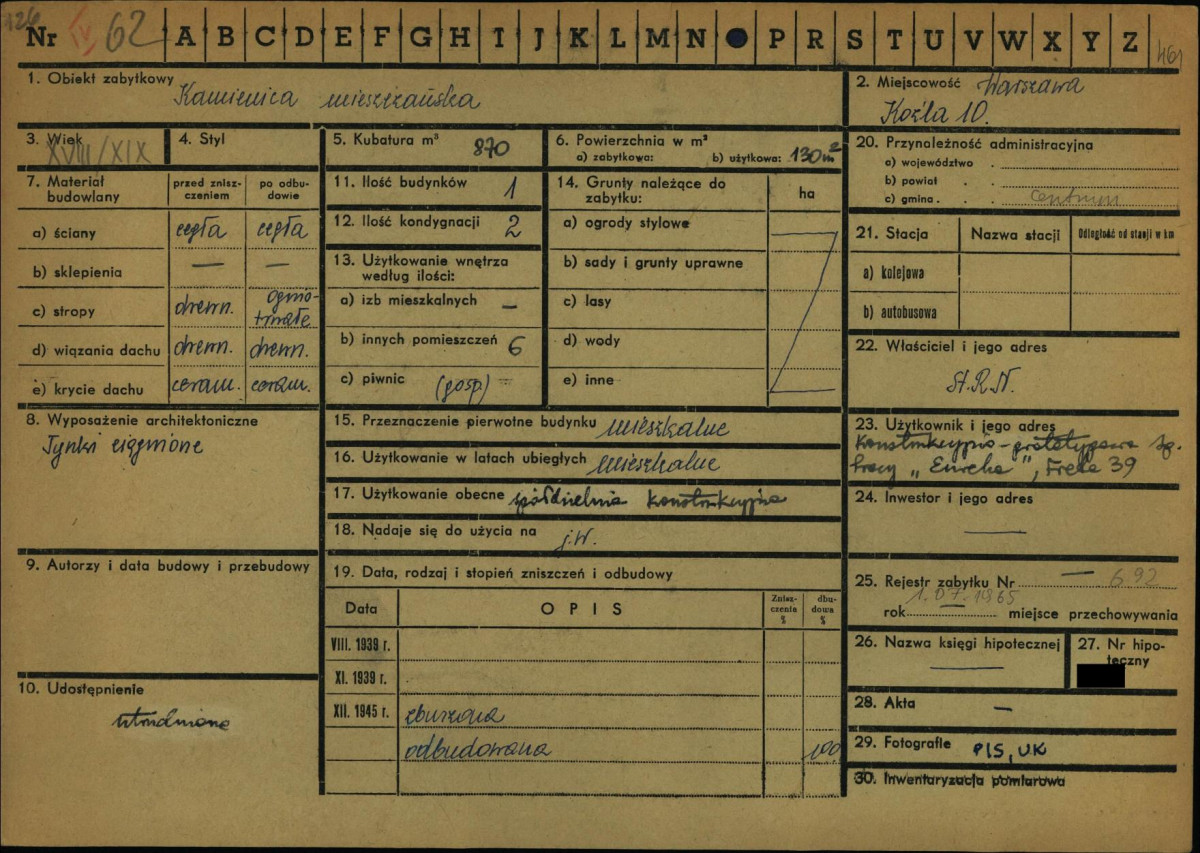 126
Nr IV 62 A B C D E F G H I J K L M N P R S T U V W X Y Z 461
1. Obiekt zabytkowy
Kamienica mieszczańska
2. Miejscowość Warszawa
Koźla 10.
3. Wiek
XVIII/XIX
4. Styl
5. Kubatura m³ 870
6. Powierzchnia w m²
a) zabytkowa: b) użytkowa: 130 m²
7. Materiał budowlany
przed zniszczeniem
po odbudowie
a) ściany cegła cegła
b) sklepienia — —
c) stropy drewn. ognio-trwałe
d) wiązania dachu drewn. drewn.
e) krycie dachu ceram. ceram.
8. Wyposażenie architektoniczne
Tynki
9. Autorzy i data budowy i przebudowy
10. Udostępnienie
utrudnione
11. Ilość budynków 1
12. Ilość kondygnacji 2
13. Użytkowanie wnętrza
według ilości:
a) izb mieszkalnych —
b) innych pomieszczeń 6
c) piwnic (gosp) —
14. Grunty należące do
zabytku:
ha
a) ogrody stylowe
b) sady i grunty uprawne
c) lasy
d) wody
e) inne
15. Przeznaczenie pierwotne budynku mieszkalne
16. Użytkowanie w latach ubiegłych mieszkalne
17. Użytkowanie obecne spółdzielnia konstrukcyjna
18. Nadaje się do użycia na j.w.
19. Data, rodzaj i stopień zniszczeń i odbudowy
Data OPIS Zniszczenia % dbudowa %
VIII. 1939 r.
XI. 1939 r.
XII. 1945 r. zburzona
odbudowana 100
20. Przynależność administracyjna
a) województwo
b) powiat
c) gmina centrum
21. Stacja Nazwa stacji Odległość od stacji w km
a) kolejowa
b) autobusowa
22. Właściciel i jego adres
St.R.N.
23. Użytkownik i jego adres
Konstrukcyjno-prototypowa Sp.
Pracy „Eureka", Freta 39
24. Inwestor i jego adres
—
25. Rejestr zabytku Nr — 692
1.07.1965
rok — miejsce przechowywania
26. Nazwa księgi hipotecznej
—
27. Nr hipoteczny
28. Akta —
29. Fotografie PIS, UK
30. Inwentaryzacja pomiarowa